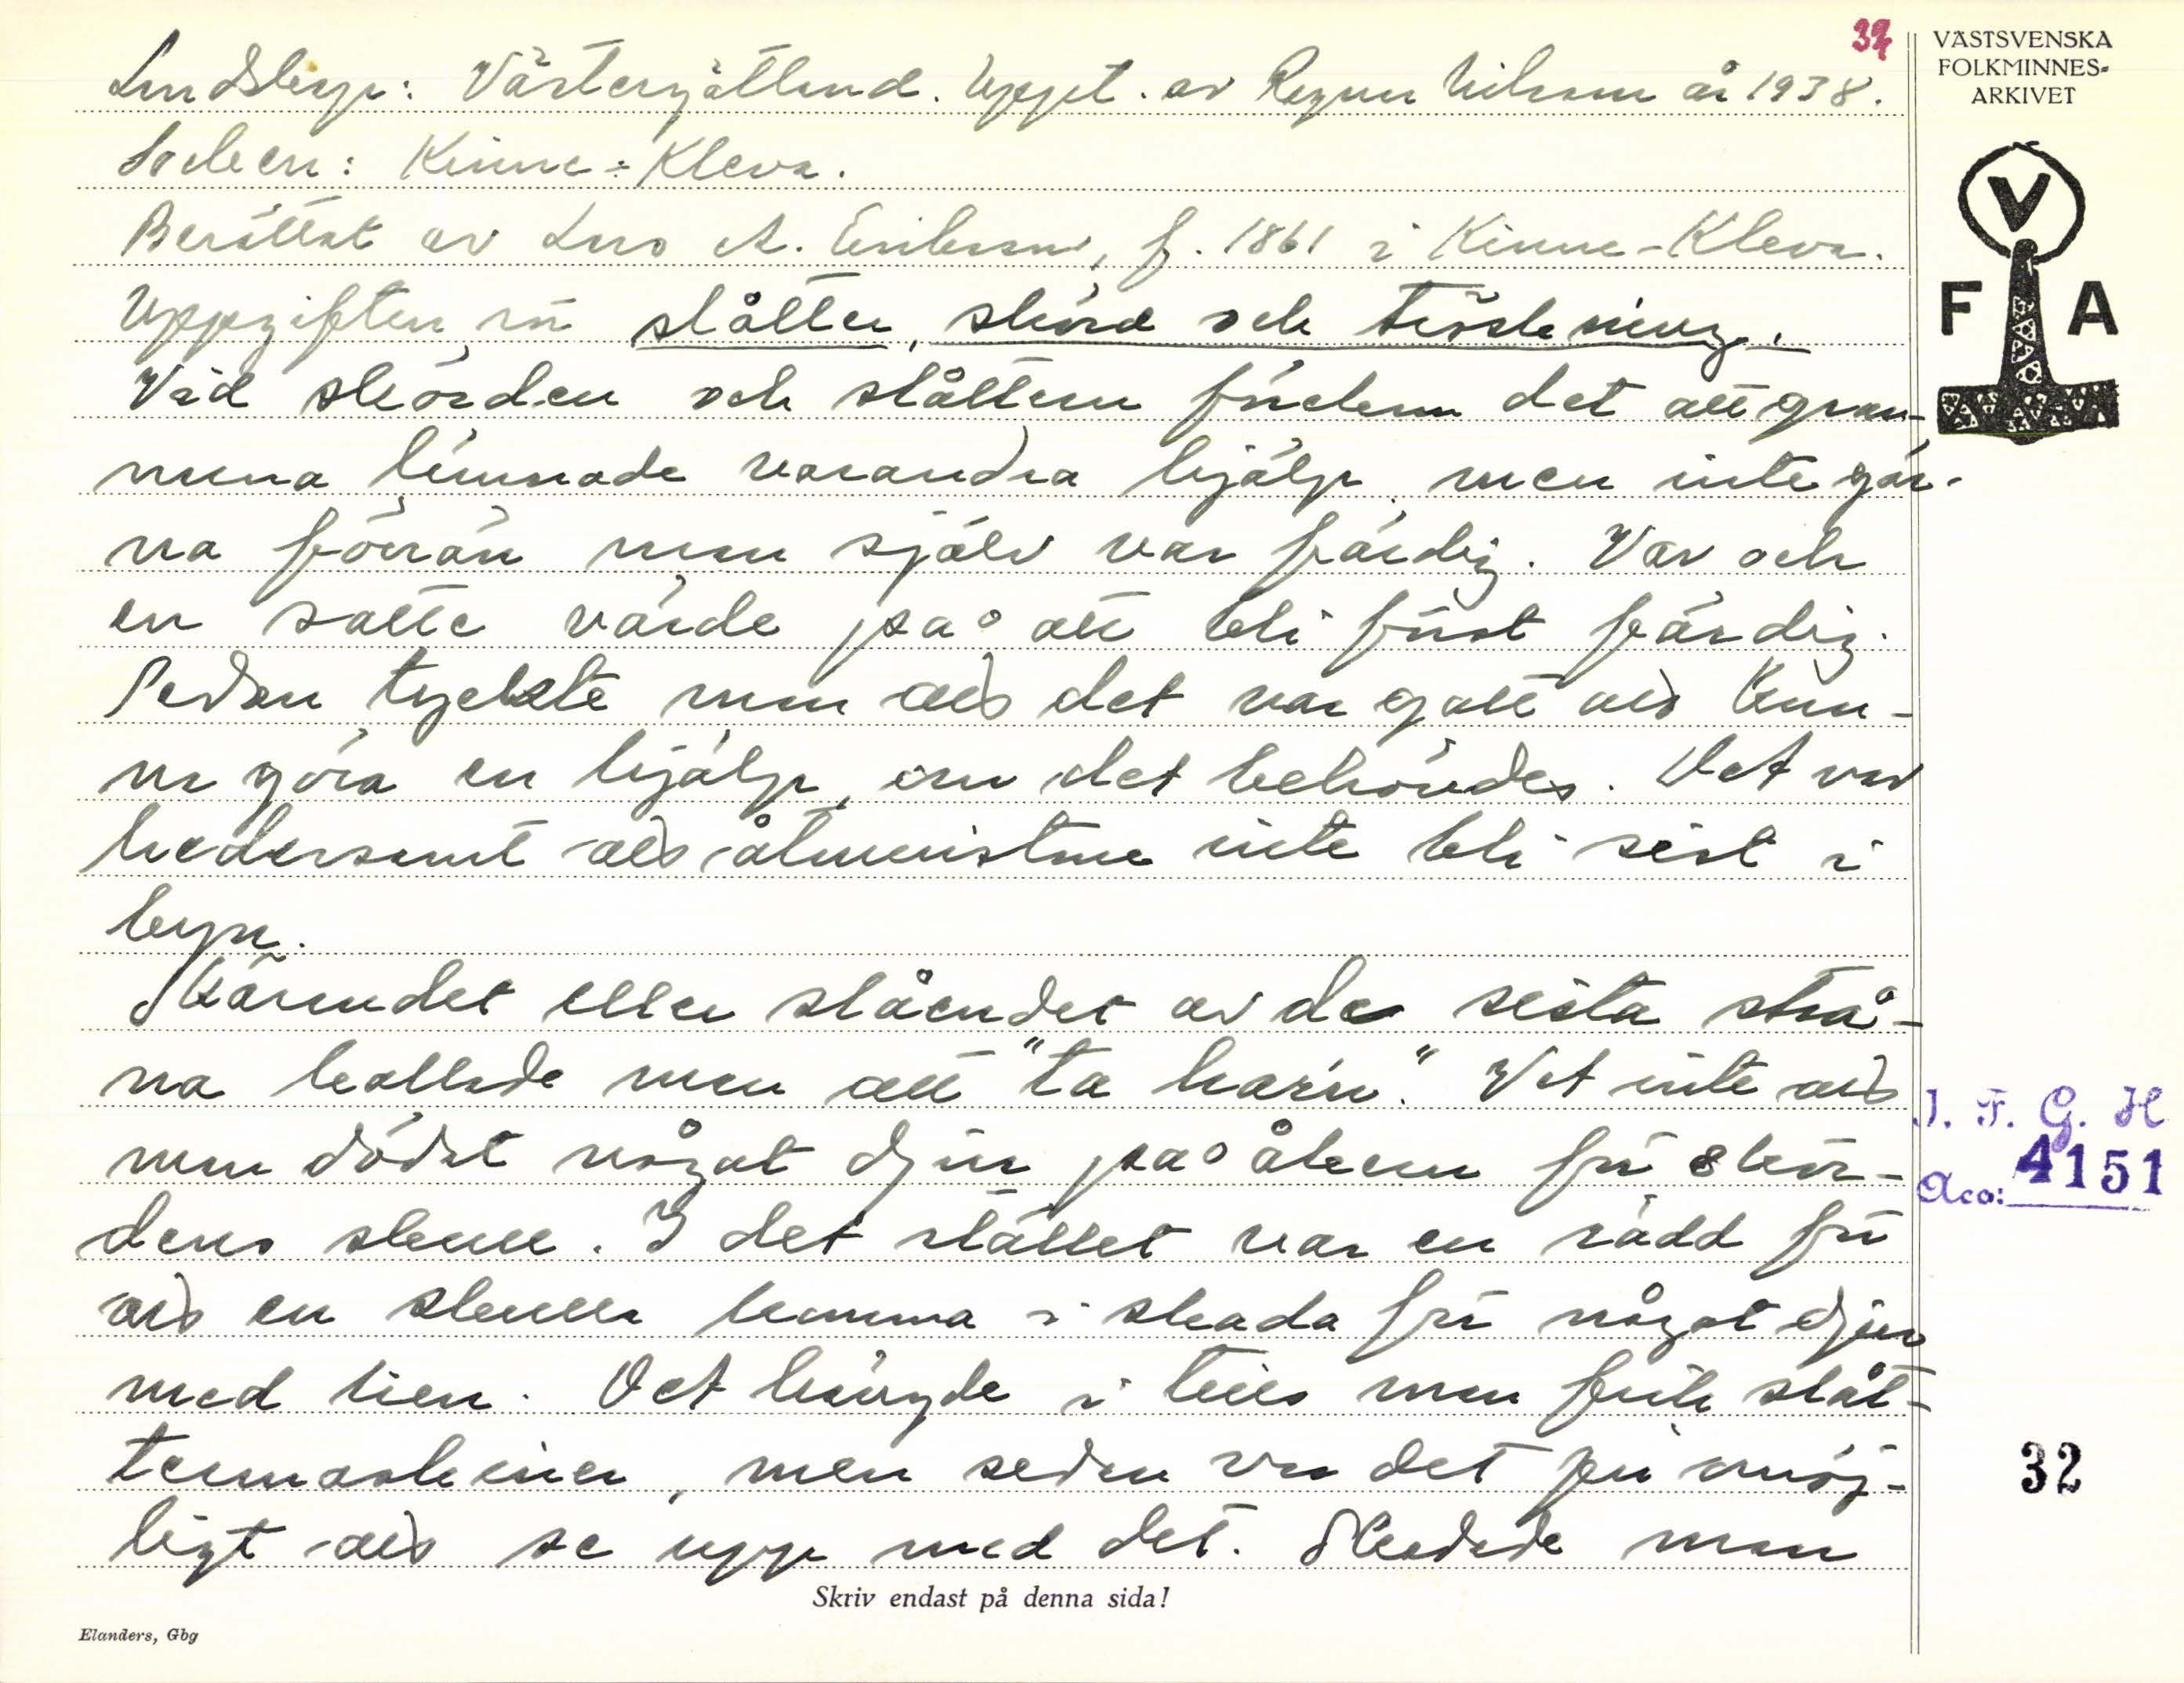 32
VÄSTSVENSKA
FOLKMINNES-
ARKIVET
V
F A
Landskap: Västergötland. Uppt. av Ragnar Nilsson år 1938.
Socken: Kinne-Kleva.
Berättat av Lars A. Eriksson, f. 1861 i Kinne-Kleva.
Uppgifter om slåtter, skörd och tröskning.
Vid skörden och slåttern förekom det att gran-
narna lämnade varandra hjälp, men inte gär-
na förrän man själv var färdig. Var och
en satte värde på att bli först färdig.
Sedan tyckte man att det var gott att kun-
na göra en hjälp, om det behövdes. Det var
hedersamt att åtminstone inte bli sist i
byn.
Skärandet eller slåendet av de sista strå-
na kallade man att "ta harn". Vet inte att
man dödat något djur på åkern för skör-
dens skull. I det stället var en rädd för
att en skulle komma i skada för något djur
med lien. Det hängde i tills man fick slåt-
termaskiner, men sedan var det ju omöj-
ligt att se upp med det. Skadade man
I. F. G. H
Acc: 4151
32
Skriv endast på denna sida!
Elanders, Gbg